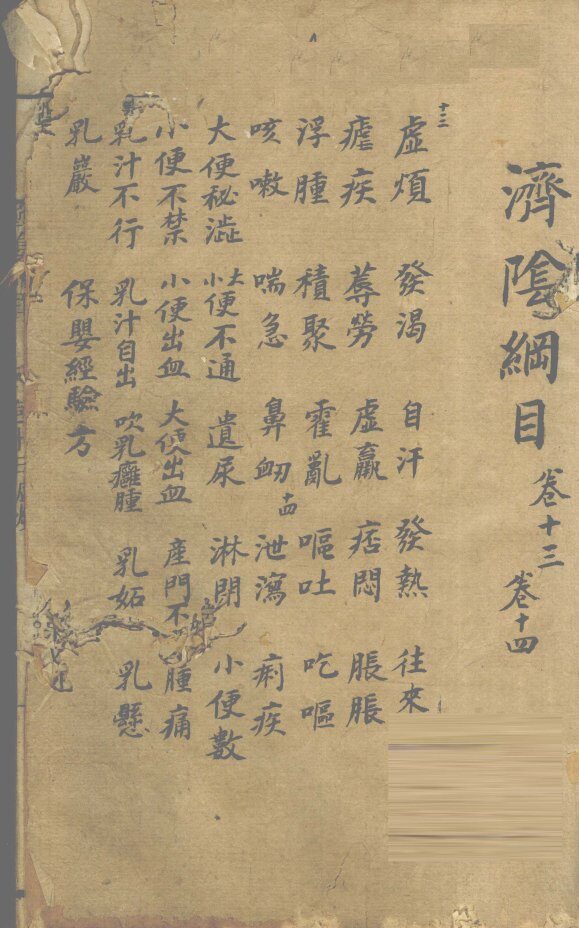 濟陰綱目 卷十三 卷十四
十三
虛煩 發渴 自汗 發熱 往來
瘧疾 蓐勞 虛羸 痞悶 脹脹
浮腫 積聚 霍亂 嘔吐 吃嘔
咳嗽 喘急 鼻衂 十四 泄瀉 痢疾
大便秘澁 大小便不通 遺尿 淋閉 小便數
小便不禁 小便出血 大便出血 產門不 腫痛
乳汁不行 乳汁自出 吹乳癰腫 乳妬 乳懸
乳巖 保嬰經驗方